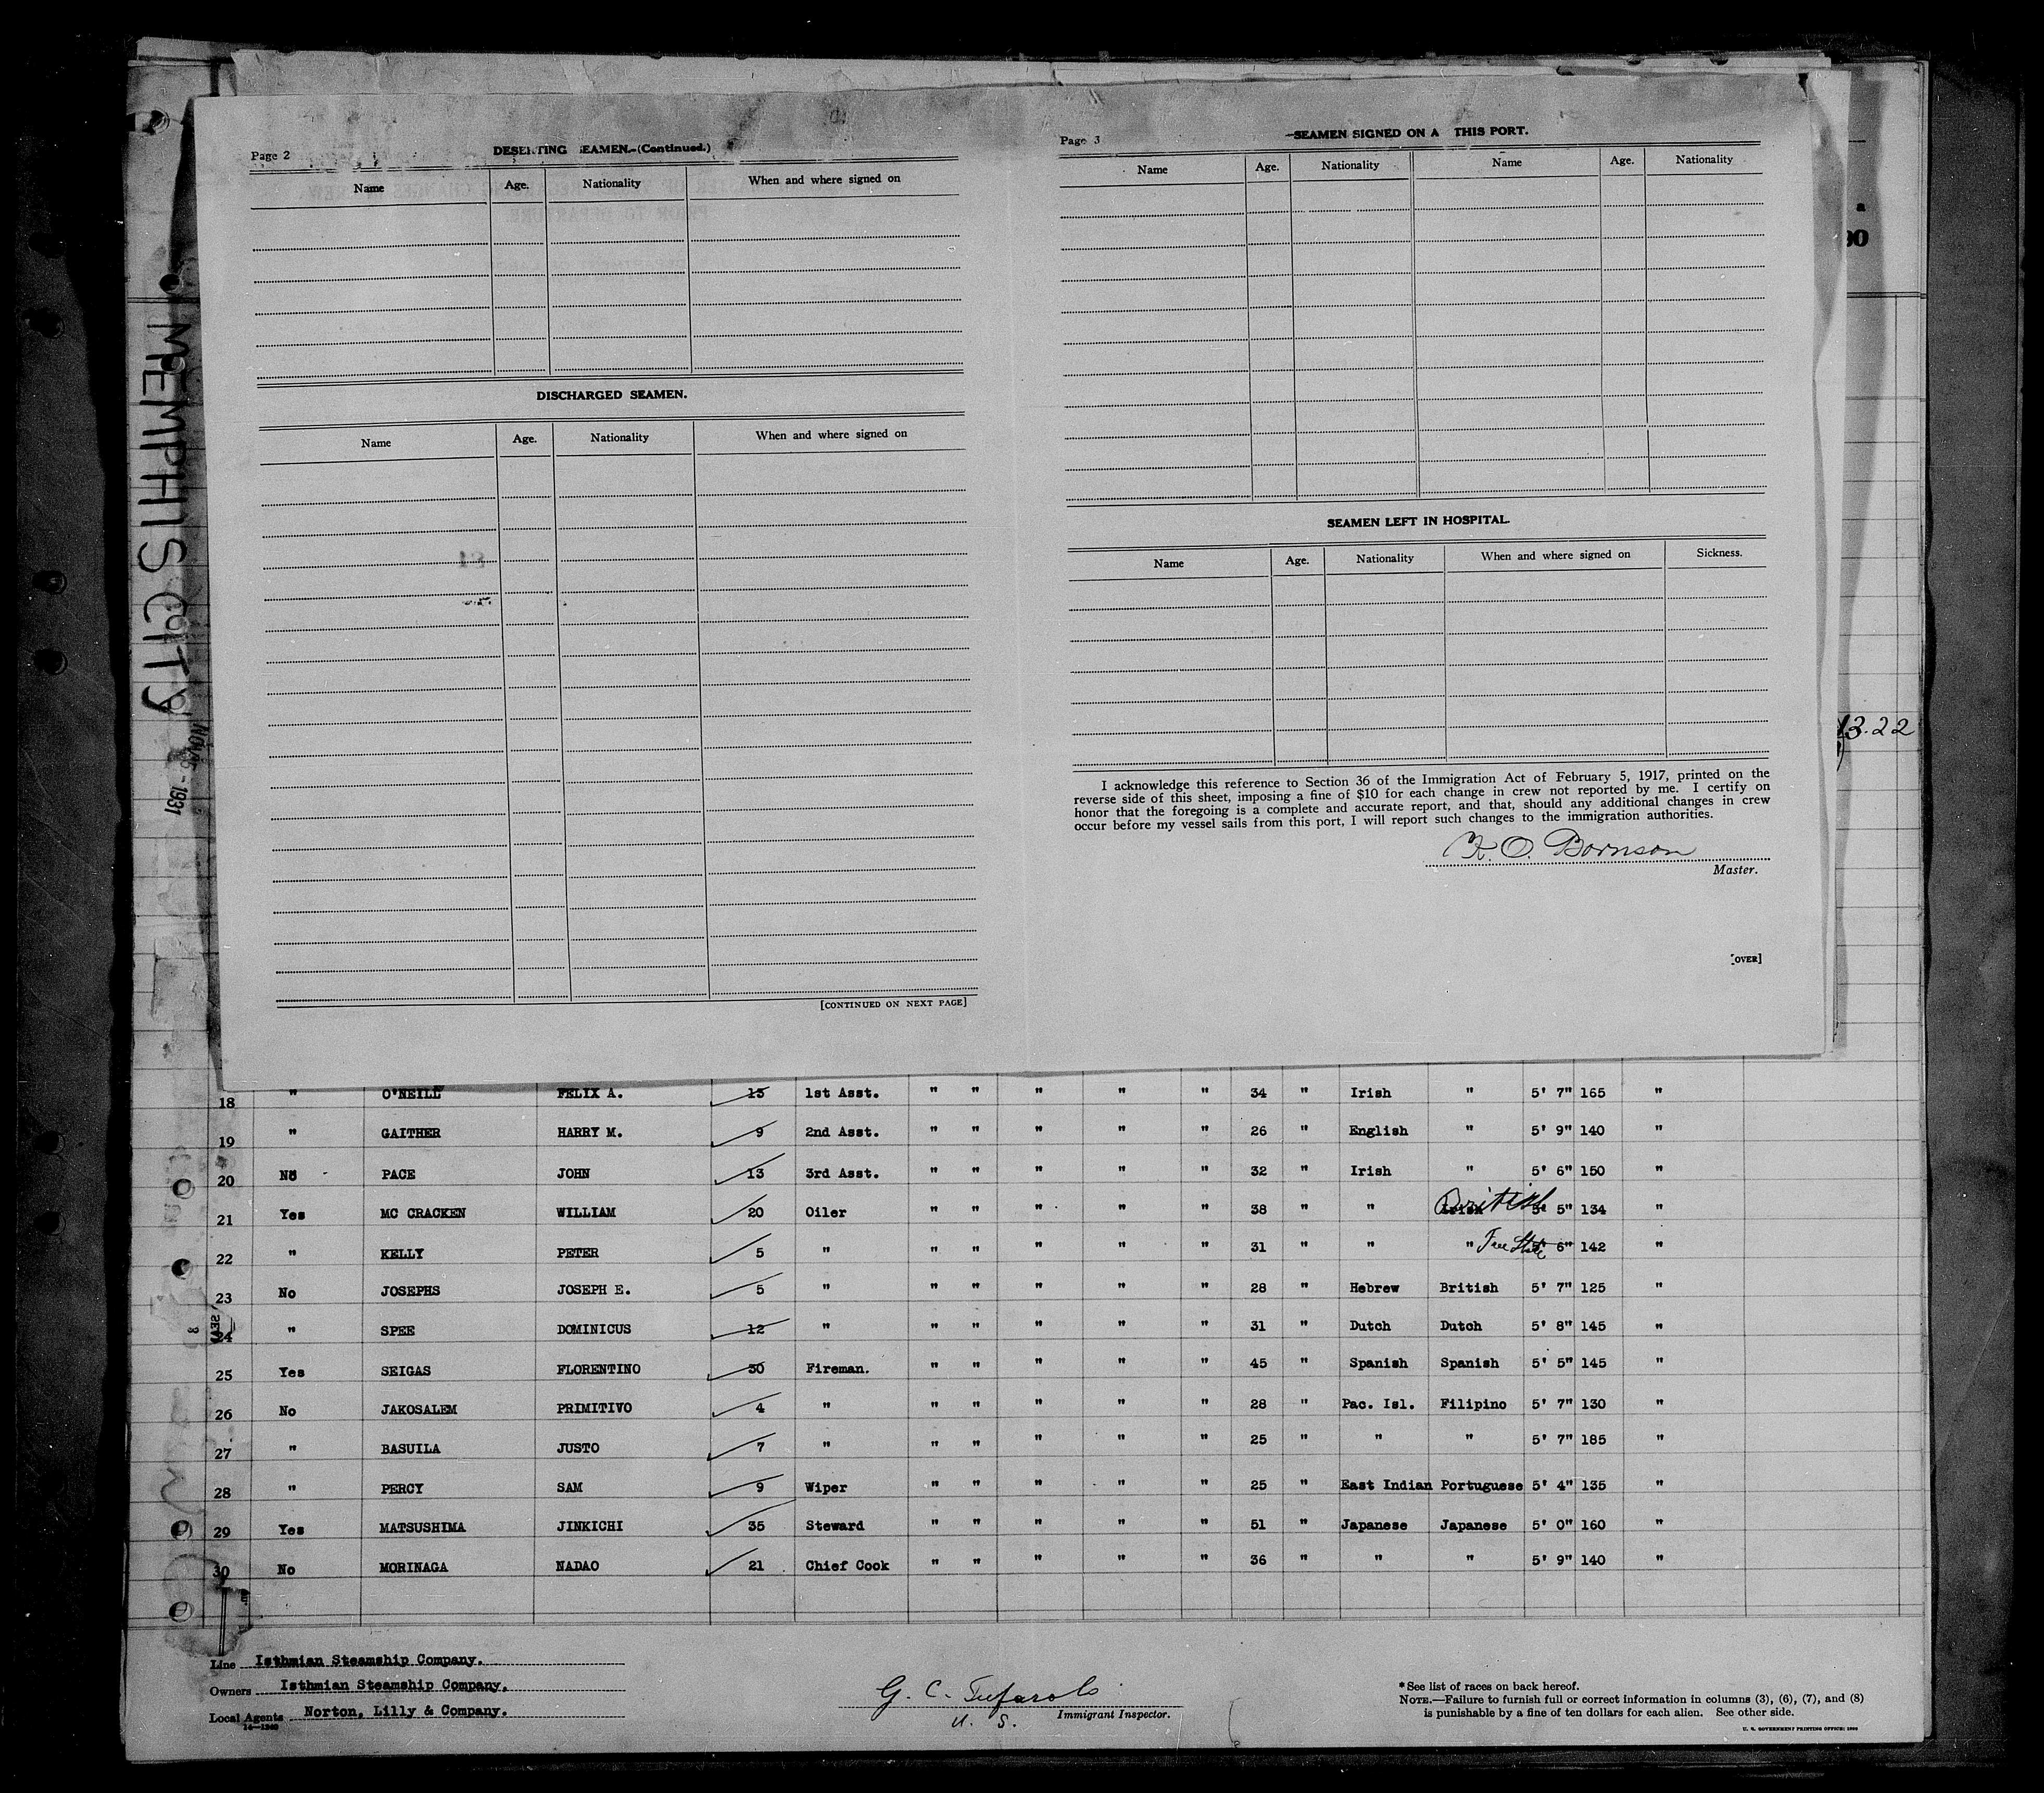 MEMPHIS CITY
1931
Page 2
DESERTING SEAMEN.—(Continued.)
Name Age. Nationality When and where signed on
DISCHARGED SEAMEN.
Name Age. Nationality When and where signed on
[CONTINUED ON NEXT PAGE]
Page 3
SEAMEN SIGNED ON A THIS PORT.
Name Age. Nationality Name Age. Nationality
SEAMEN LEFT IN HOSPITAL.
Name Age. Nationality When and where signed on Sickness.
I acknowledge this reference to Section 36 of the Immigration Act of February 5, 1917, printed on the
reverse side of this sheet, imposing a fine of $10 for each change in crew not reported by me. I certify on
honor that the foregoing is a complete and accurate report, and that, should any additional changes in crew
occur before my vessel sails from this port, I will report such changes to the immigration authorities.
K. O. Bornson
Master.
[OVER]
13.22
18 " O'NEILL FELIX A. 15 1st Asst. " " " " " 34 " Irish " 5' 7" 165 "
19 " GAITHER HARRY M. 9 2nd Asst. " " " " " 26 " English " 5' 9" 140 "
20 No PACE JOHN 13 3rd Asst. " " " " " 32 " Irish " 5' 6" 150 "
21 Yes MC CRACKEN WILLIAM 20 Oiler " " " " " 38 " " British 5' 5" 134 "
22 " KELLY PETER 5 " " " " " " 31 " " " Free State 6" 142 "
23 No JOSEPHS JOSEPH E. 5 " " " " " " 28 " Hebrew British 5' 7" 125 "
24 " SPEE DOMINICUS 12 " " " " " " 31 " Dutch Dutch 5' 8" 145 "
25 Yes SEIGAS FLORENTINO 30 Fireman. " " " " " 45 " Spanish Spanish 5' 5" 145 "
26 No JAKOSALEM PRIMITIVO 4 " " " " " " 28 " Pac. Isl. Filipino 5' 7" 130 "
27 " BASUILA JUSTO 7 " " " " " " 25 " " " 5' 7" 185 "
28 " PERCY SAM 9 Wiper " " " " " 25 " East Indian Portuguese 5' 4" 135 "
29 Yes MATSUSHIMA JINKICHI 35 Steward " " " " " 51 " Japanese Japanese 5' 0" 160 "
30 No MORINAGA NADAO 21 Chief Cook " " " " " 36 " " " 5' 9" 140 "
Line Isthmian Steamship Company.
Owners Isthmian Steamship Company.
Local Agents Norton, Lilly & Company.
14—1240
G. C.
U. S. Immigrant Inspector.
* See list of races on back hereof.
NOTE.—Failure to furnish full or correct information in columns (3), (6), (7), and (8)
is punishable by a fine of ten dollars for each alien. See other side.
U. S. GOVERNMENT PRINTING OFFICE: